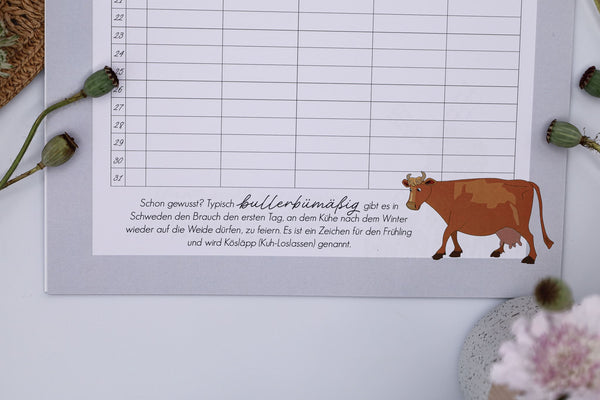 21
22
23
24
25
26
27
28
29
30
31
Schon gewusst? Typisch bullerbümäßig gibt es in
Schweden den Brauch den ersten Tag, an dem Kühe nach dem Winter
wieder auf die Weide dürfen, zu feiern. Es ist ein Zeichen für den Frühling
und wird Kösläpp (Kuh-Loslassen) genannt.